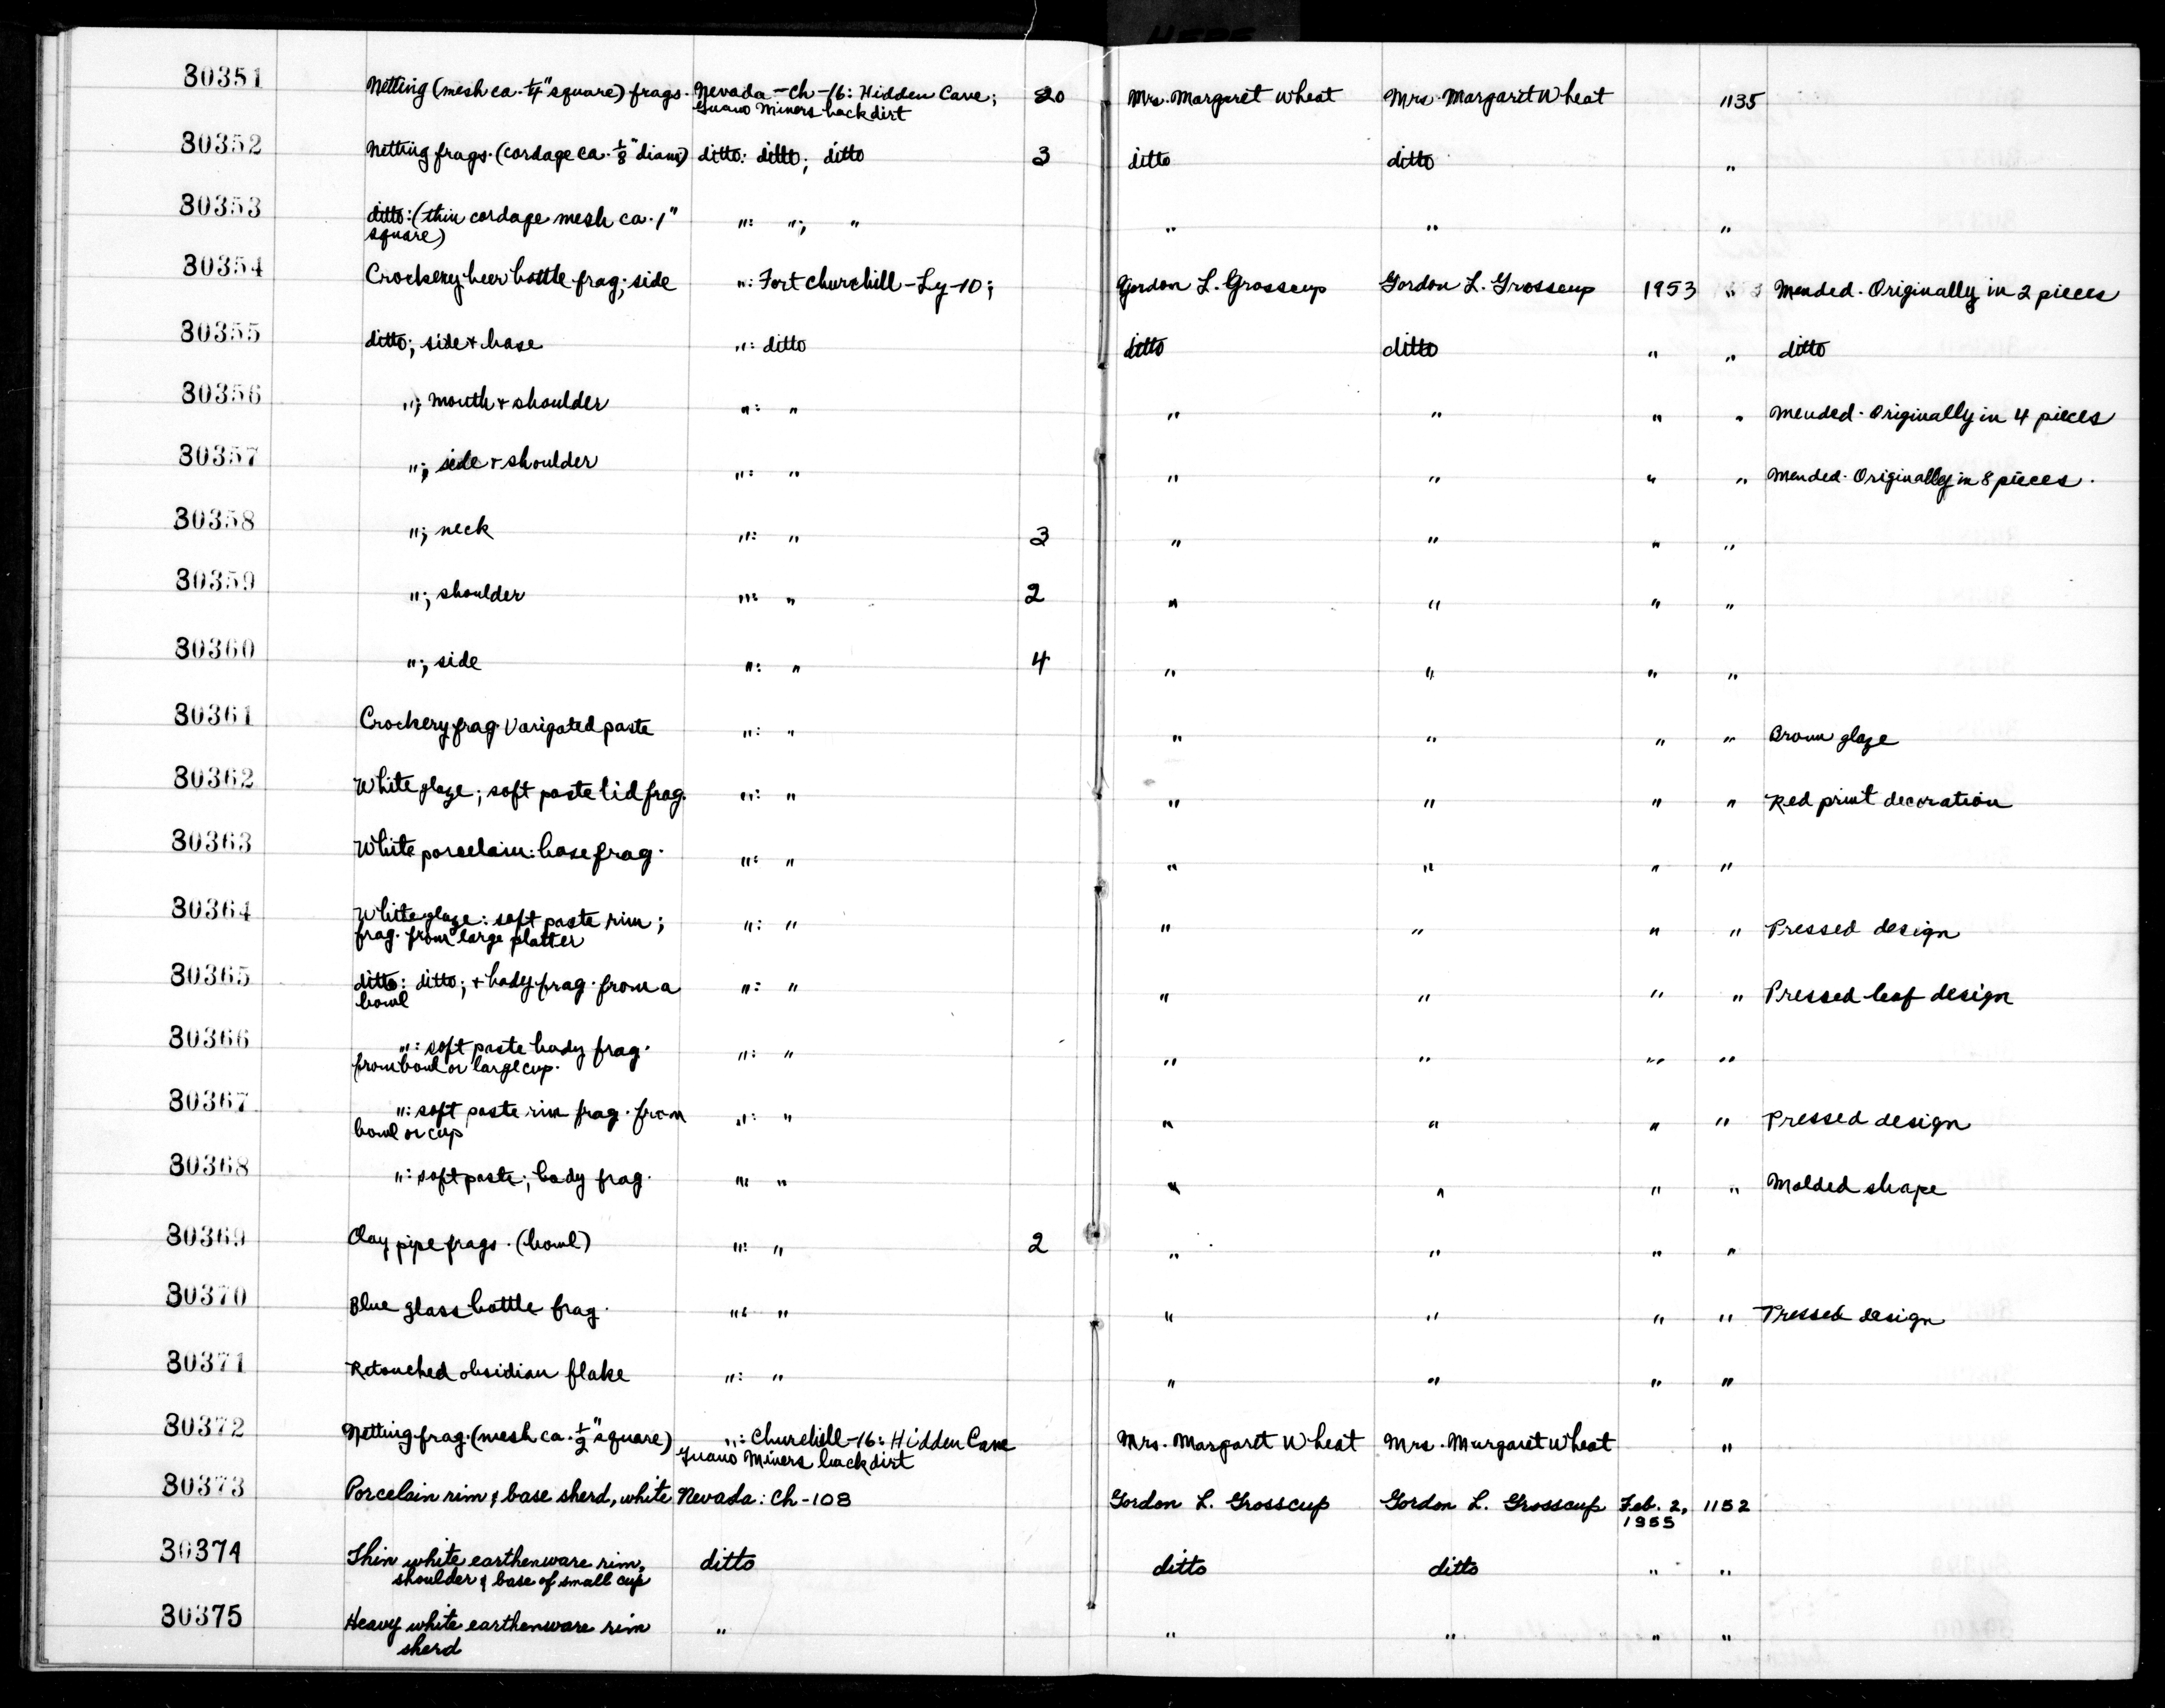 HERE
30351 Netting (mesh ca. 1/4" square) frags. Nevada-Ch-16: Hidden Cave; 20 Mrs. Margaret Wheat Mrs. Margaret Wheat 1135
Guano Miners backdirt
30352 Netting frags. (cordage ca. 1/8" diam) ditto: ditto; ditto 3 ditto ditto "
30353 ditto: (thin cordage mesh ca. 1" ": "; " " " "
square)
30354 Crockery beer bottle frag; side ": Fort Churchill-Ly-10; Gordon L. Grosscup Gordon L. Grosscup 1953 " Mended. Originally in 2 pieces
30355 ditto; side & base ": ditto ditto ditto " " ditto
30356 "; mouth & shoulder ": " " " " " Mended. Originally in 4 pieces
30357 "; side & shoulder ": " " " " " Mended. Originally in 8 pieces.
30358 "; neck ": " 3 " " " "
30359 "; shoulder ": " 2 " " " "
30360 "; side ": " 4 " " " "
30361 Crockery frag. Varigated paste ": " " " " " Brown glaze
30362 White glaze; soft paste lid frag. ": " " " " " Red print decoration
30363 White porcelain: base frag. ": " " " " "
30364 White glaze: soft paste rim; ": " " " " " Pressed design
frag. from large platter
30365 ditto: ditto; & body frag. from a ": " " " " " Pressed leaf design
bowl
30366 ": soft paste body frag. ": " " " " "
from bowl or large cup.
30367 ": soft paste rim frag. from ": " " " " " Pressed design
bowl or cup
30368 ": soft paste; body frag. ": " " " " " Molded shape
30369 Clay pipe frags. (bowl) ": " 2 " " " "
30370 Blue glass bottle frag. ": " " " " " Pressed design
30371 Retouched obsidian flake ": " " " " "
30372 Netting frag. (mesh ca. 1/2" square) ": Churchill-16: Hidden Cave Mrs. Margaret Wheat Mrs. Margaret Wheat "
Guano Miners backdirt
30373 Porcelain rim & base sherd, white Nevada: Ch-108 Gordon L. Grosscup Gordon L. Grosscup Feb. 2, 1152
1955
30374 Thin white earthenware rim, ditto ditto ditto " "
shoulder & base of small cup
30375 Heavy white earthenware rim " " " " "
sherd